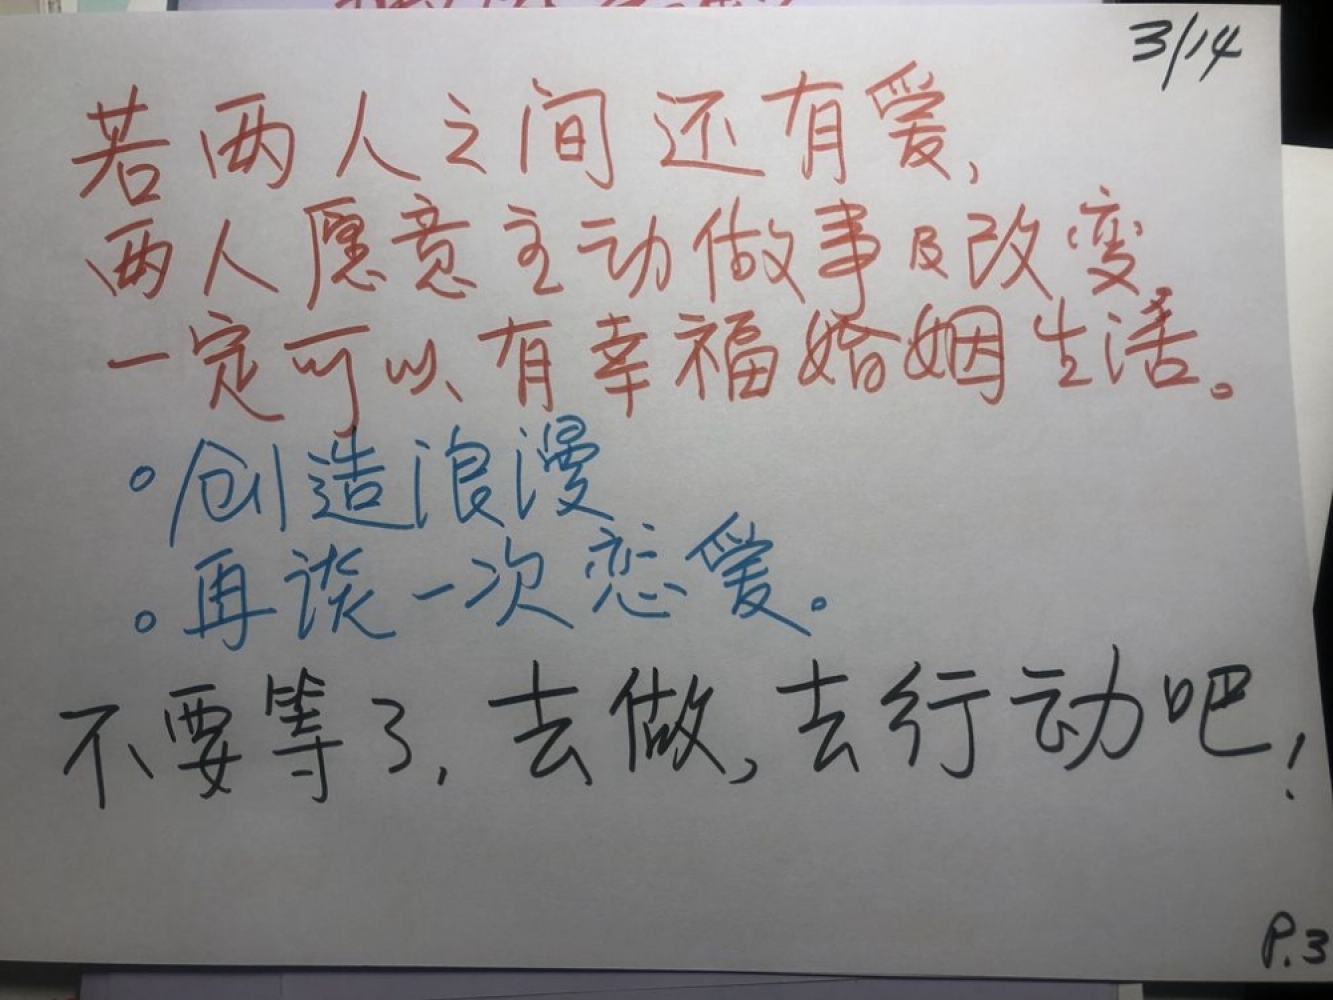 3/14
若两人之间还有爱,
两人愿意主动做事及改变,
一定可以有幸福婚姻生活。
。创造浪漫
。再谈一次恋爱。
不要等了,去做,去行动吧!
P.3